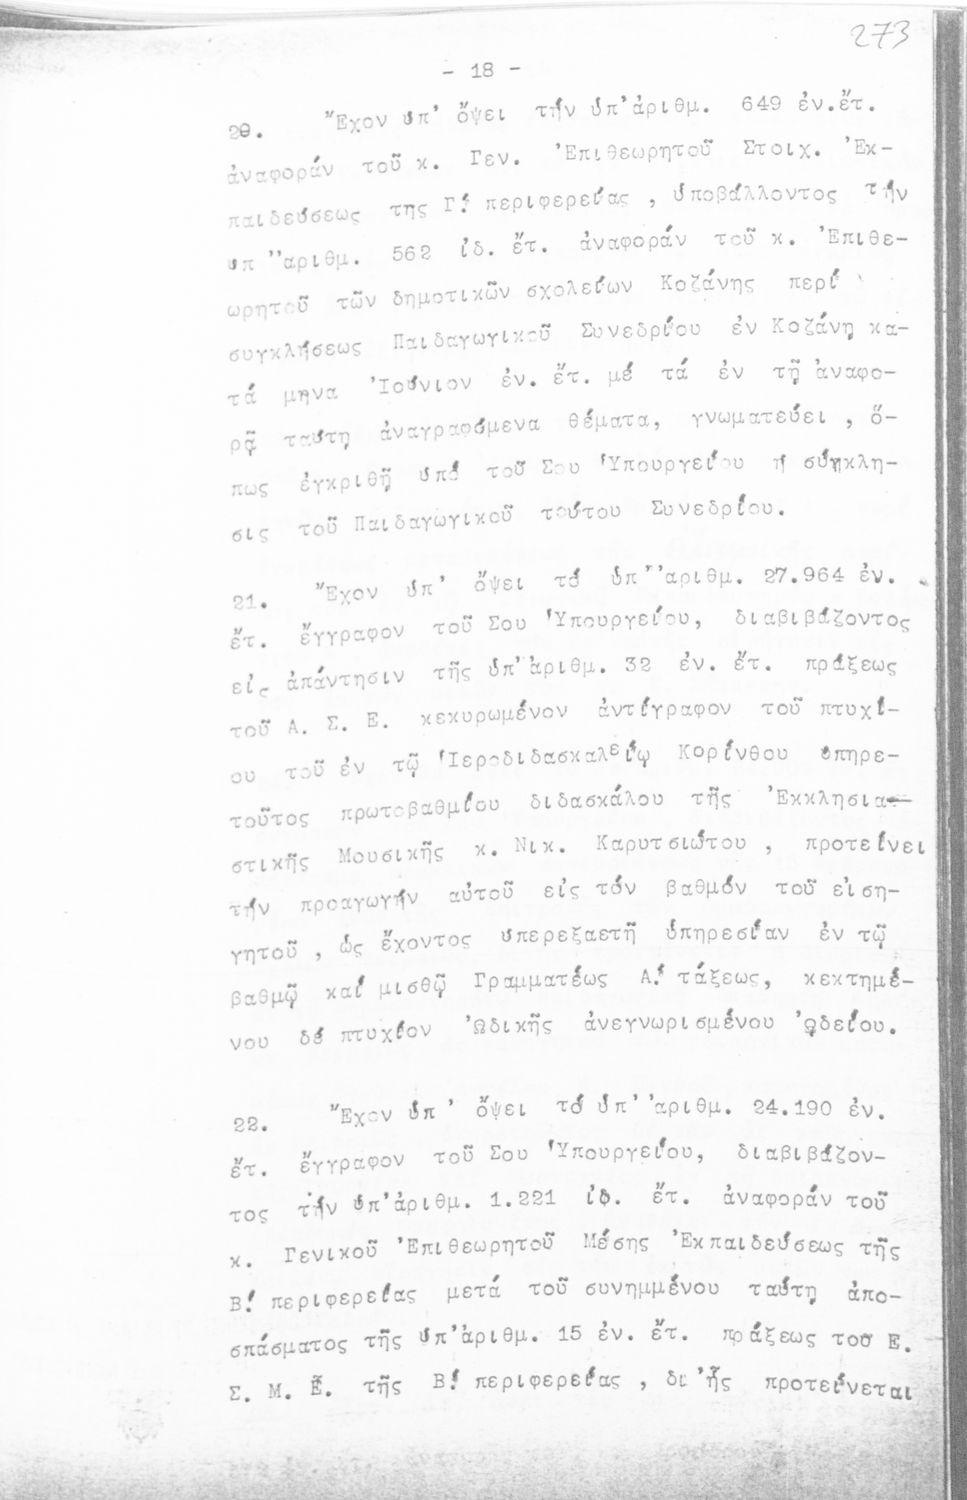 273
- 18 -
20. Ἔχον ὑπ' ὄψει τήν ὑπ'ἀριθμ. 649 ἐν.ἔτ.
ἀναφοράν τοῦ κ. Γεν. Ἐπιθεωρητοῦ Στοιχ. Ἐκ-
παιδεύσεως της Γ΄ περιφερείας , ὑποβάλλοντος τήν
υπ ''αριθμ. 562 ἰδ. ἔτ. ἀναφοράν τοῦ κ. Ἐπιθε-
ωρητοῦ τῶν δημοτικῶν σχολείων Κοζάνης περί
συγκλήσεως Παιδαγωγικοῦ Συνεδρίου ἐν Κοζάνῃ κα-
τά μηνα Ἰούνιον ἐν. ἔτ. μέ τά ἐν τῇ ἀναφο-
ρᾷ ταύτῃ ἀναγραφόμενα θέματα, γνωματεύει , ὅ-
πως ἐγκριθῇ ὑπό τοῦ Σου Ὑπουργείου ἡ σύγκλη-
σις τοῦ Παιδαγωγικοῦ τούτου Συνεδρίου.
21. Ἔχον ὑπ' ὄψει τό ὑπ''αριθμ. 27.964 ἐν.
ἔτ. ἔγγραφον τοῦ Σου Ὑπουργείου, διαβιβάζοντος
εἰς ἀπάντησιν τῆς ὑπ'ἀριθμ. 32 ἐν. ἔτ. πράξεως
τοῦ Α. Σ. Ε. κεκυρωμένον ἀντίγραφον τοῦ πτυχί-
ου τοῦ ἐν τῷ Ἱεροδιδασκαλείῳ Κορίνθου ὑπηρε-
τοῦτος πρωτοβαθμίου διδασκάλου τῆς Ἐκκλησια-
στικῆς Μουσικῆς κ. Νικ. Καρυτσιώτου , προτείνει
τήν προαγωγήν αὐτοῦ εἰς τόν βαθμόν τοῦ εἰση-
γητοῦ , ὡς ἔχοντος ὑπερεξαετῆ ὑπηρεσίαν ἐν τῷ
βαθμῷ καί μισθῷ Γραμματέως Α΄ τάξεως, κεκτημέ-
νου δέ πτυχίον Ὠδικῆς ἀνεγνωρισμένου ᾠδείου.
22. Ἔχον ὑπ ' ὄψει τό ὑπ' 'αριθμ. 24.190 ἐν.
ἔτ. ἔγγραφον τοῦ Σου Ὑπουργείου, διαβιβάζον-
τος τήν ὑπ'ἀριθμ. 1.221 ἰδ. ἔτ. ἀναφοράν τοῦ
κ. Γενικοῦ Ἐπιθεωρητοῦ Μέσης Ἐκπαιδεύσεως τῆς
Β΄ περιφερείας μετά τοῦ συνημμένου ταύτῃ ἀπο-
σπάσματος τῆς ὑπ'ἀριθμ. 15 ἐν. ἔτ. πράξεως του Ε.
Σ. Μ. Ε. τῆς Β΄ περιφερείας , δι 'ἧς προτείνεται